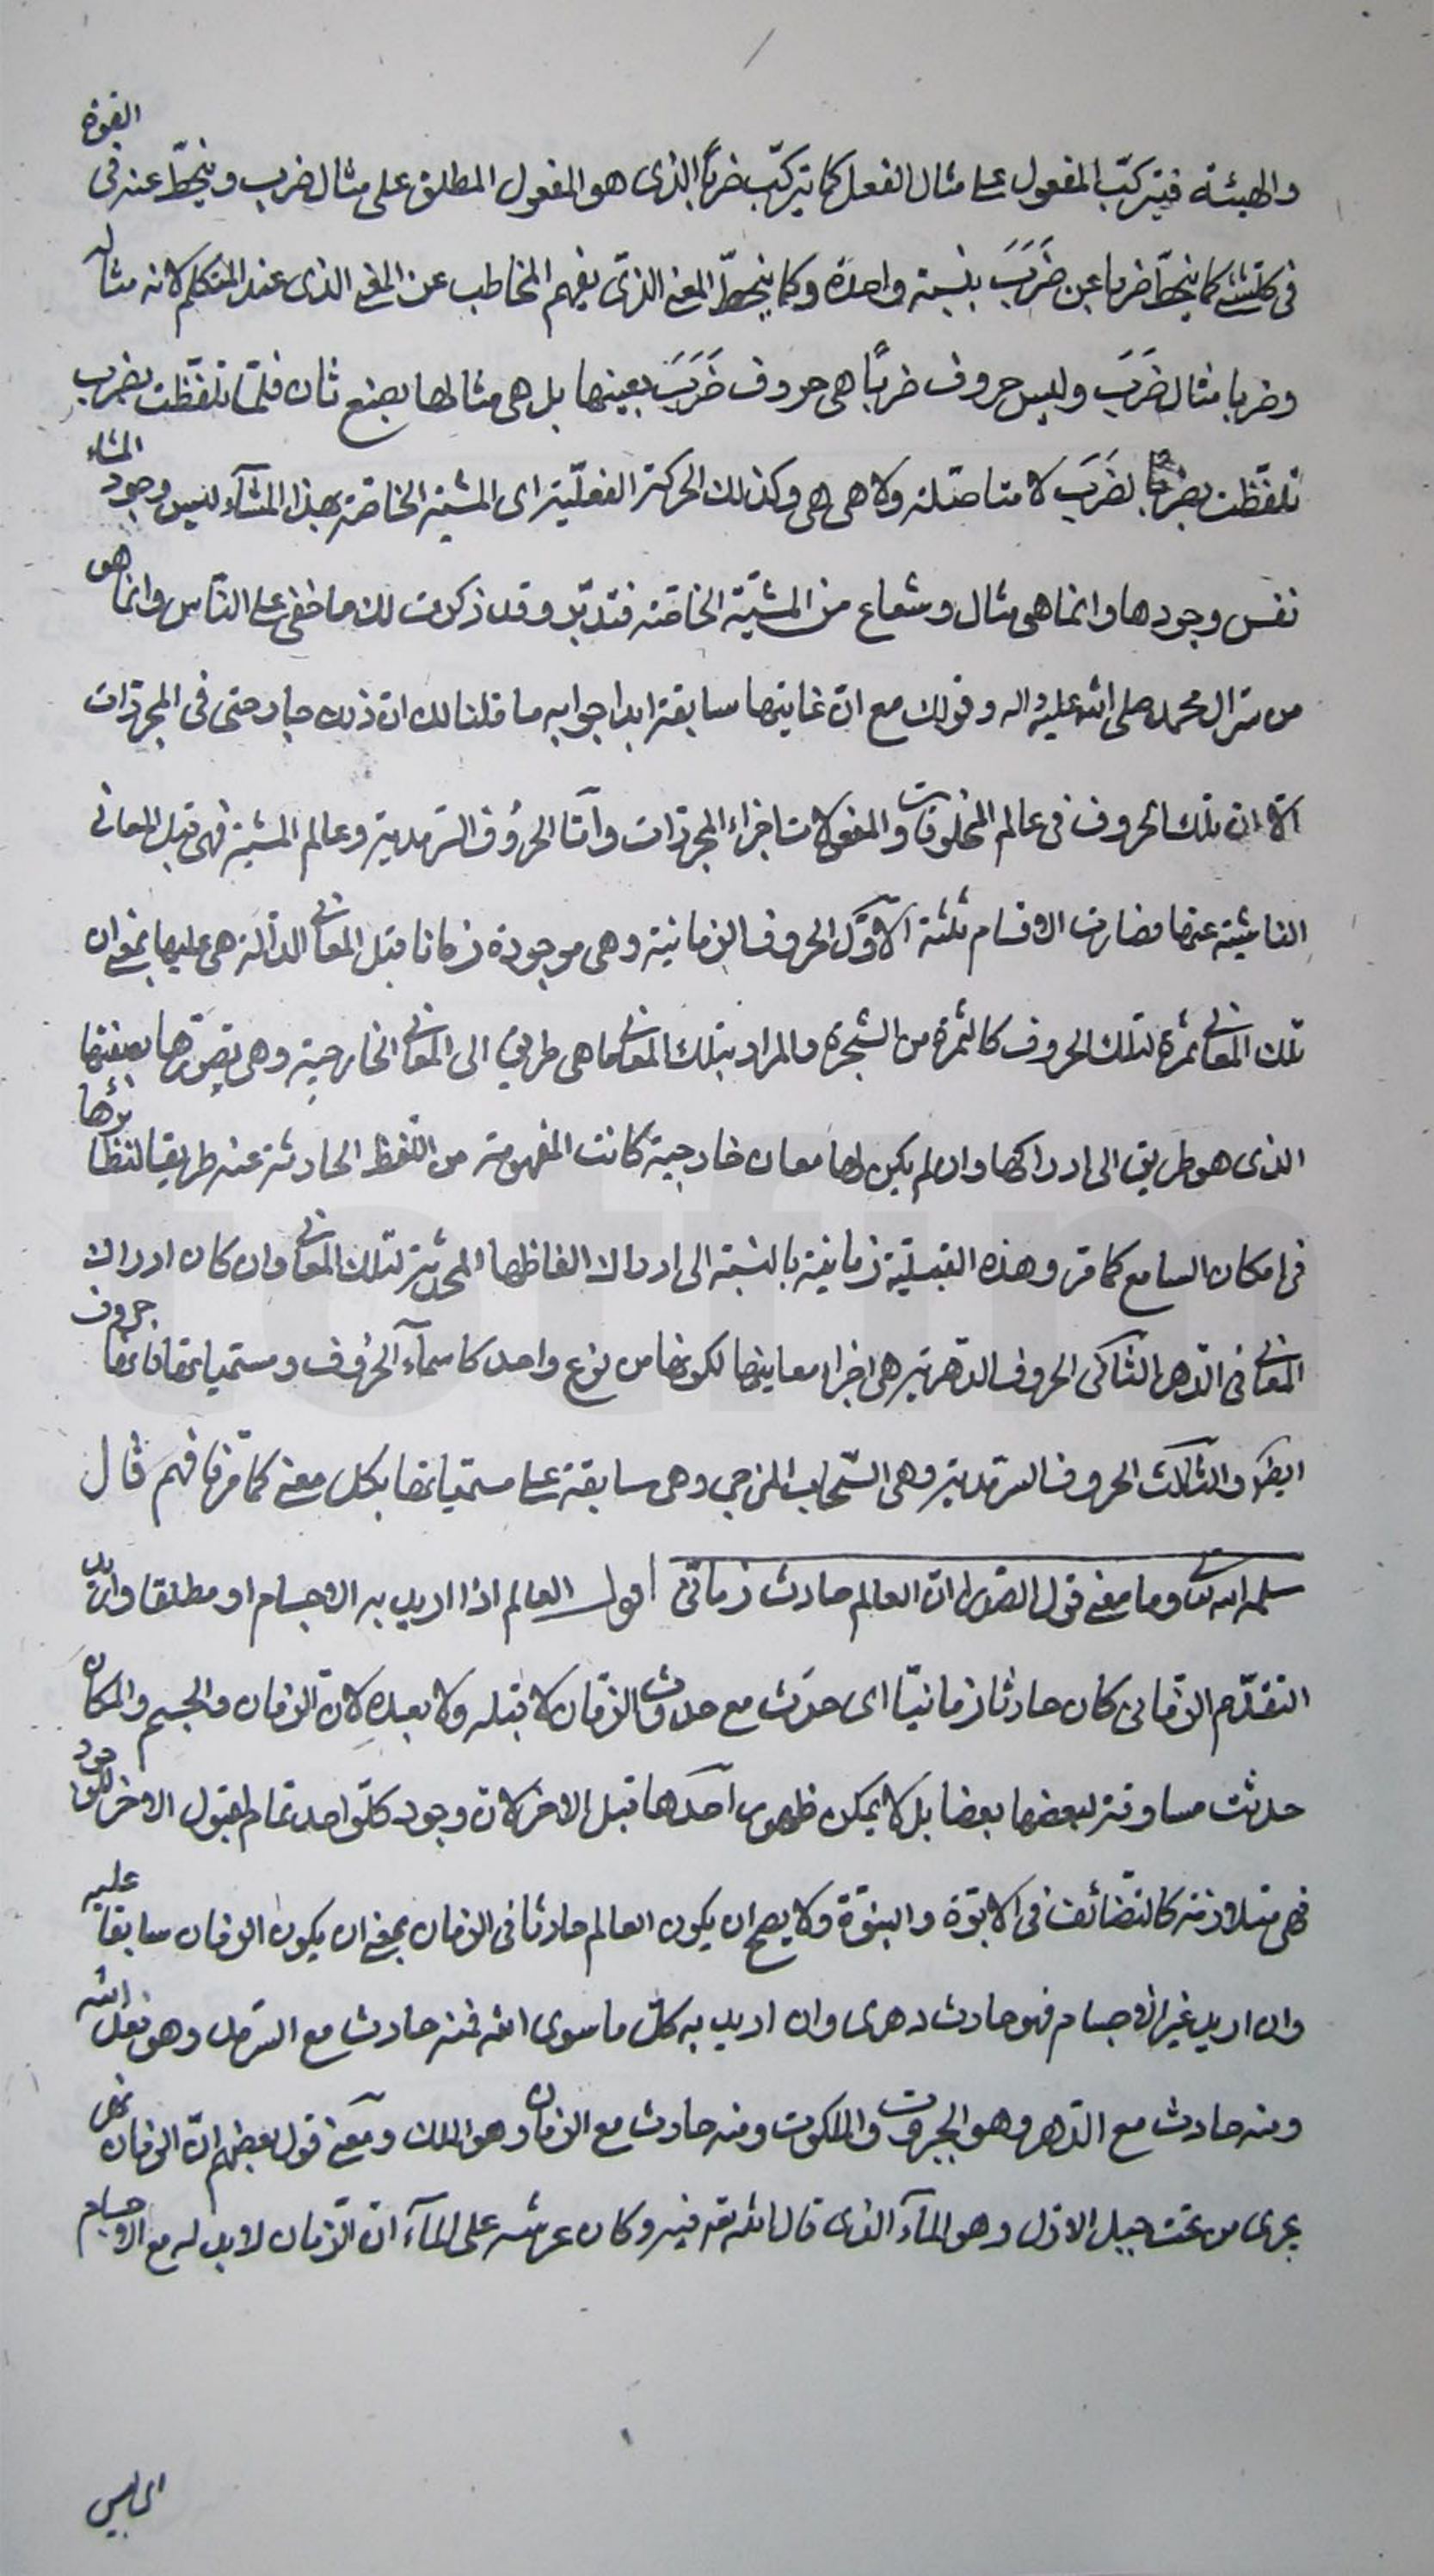 والهيئة فيتركّب المفعول على مثال الفعل كما يتركّب ضرباً الذى هو المفعول المطلق على مثال ضرب وينحطّ عنه فى القوة
فى كلّ شىء كما ينحطّ ضربا عن ضَرَبَ بنسبة واحدة وكما ينحطّ المعنى الذى يفهم المخاطب عن المعنى الذى عند المتكلم لانه مثاله
وضربا مثال ضَرَبَ وليس حروف ضرباً هى حروف ضَرَبَ بعينها بل هى مثالها بصنع ثان فلمّا تلفّظت بضرب
تلفّظت بضرباً لضَرَبَ لا متاصّلة ولا هى هى وكذلك الحركة الفعليّة اى المشية الخاصّة بهذا المشآء ليس وجود المشاء
نفس وجودها وانما هى مثال وشعاع من المشيّة الخاصّة فتدبّر وقد ذكرت لك ما خفى على النّاس وانما هو
من سرّ ال محمد صلى الله عليه واله وقولك مع انّ غايتها سابقة ابدا جوابه ما قلنا لك ان ذلك جار حتى فى المجرّدات
الّا ان تلك الحروف فى عالم المخلوقات والمفعولات اجزاء المجرّدات وامّا الحرُوف السّرمدية وعالم المشية فهى قبل المعانى
الناشئة عنها فصارت الاقسام ثلثة الاوّل الحروف الزمانية وهى موجودة زمانا قبل المعانى الدالّة هى عليها بمعنى ان
تلك المعانى ثمرة لتلك الحروف كالثمرة من الشجرة والمراد بتلك المعانى ما هى طريق الى المعانى الخارجية وهى تصوّرها بصفتها
الذى هو طريق الى ادراكها وان لم يكن لها معان خارجية كانت المفهومة من اللّفظ الحادثة عنه طريقا لنظائرها
فى امكان السامع كما مرّ وهذه القبليّة زمانية بالنسبة الى ادراك الفاظها المحدثة لتلك المعانى وان كان ادراك
المعانى فى الدّهر الثانى الحروف الدّهرية هى اجزاء معاينها لكونها من نوع واحد كاسمآء الحرُوف ومسمّياتها فانها حروف
ايضا والثالث الحروف السرمدية وهى السّحاب المزجى وهى سابقة على مسمّياتها بكل معنى كما مرّ فافهم قال
سلمه الله تعالى وما معنى قول انّ العالم حادث زمانى اقول العالم اذا اريد به الاجسام او مطلقا واريد
التقدّم الزمانى كان حادثا زمانيّا اى حدَث مع حدوث الزّمان لا قبله ولا بعده لانّ الزمان والجسم والمكان
حدثت مساوقة لبعضها بعضا بل لا يمكن ظهور احدها قبل الاخر لانّ وجود كلّ واحد تمام لقبول الاخر للوجود
فهى متلازمة كالتّضائف فى الابوّة والبنوّة ولا يصح ان يكون العالم حادثا فى الزمان بمعنى ان يكون الزمان سابقا عليه
وان اريد غير الاجسام فهو حادث دهرى وان اريد به كلّ ما سوى الله فمنه حادث مع السّرمد وهو فعل الله
ومنه حادث مع الدّهر وهو الجبروت والملكوت ومنه حادث مع الزمان وهو الملك ومعنى قول بعضهم انّ الزمان نهر
يجرى من تحت جبل الازل وهو المآء الذى قال الله تعه فيه وكان عرشه على المآء انّ الزّمان لا بد له مع الاجسام
اى ليس